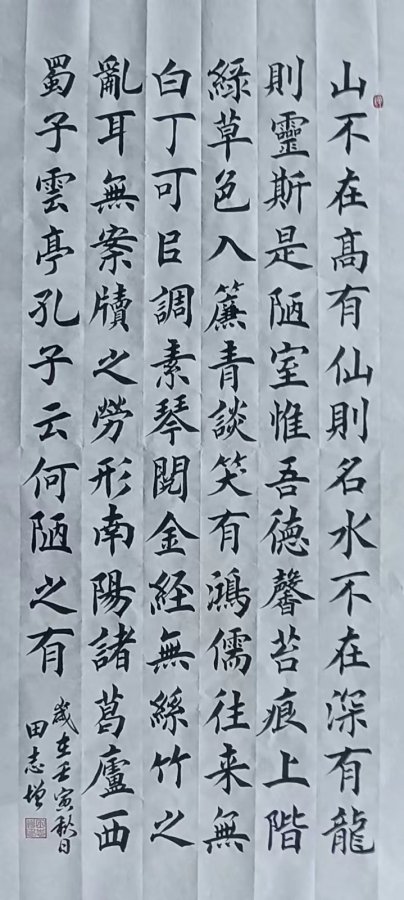 山不在髙有仙則名水不在深有龍
則靈斯是陋室惟吾徳馨苔痕上階
綠草色入簾青談笑有鴻儒往来無
白丁可㠯調素琴閲金経無絲竹之
亂耳無案牘之勞形南陽諸葛廬西
蜀子雲亭孔子云何陋之有
歲在壬寅秋日
田志增